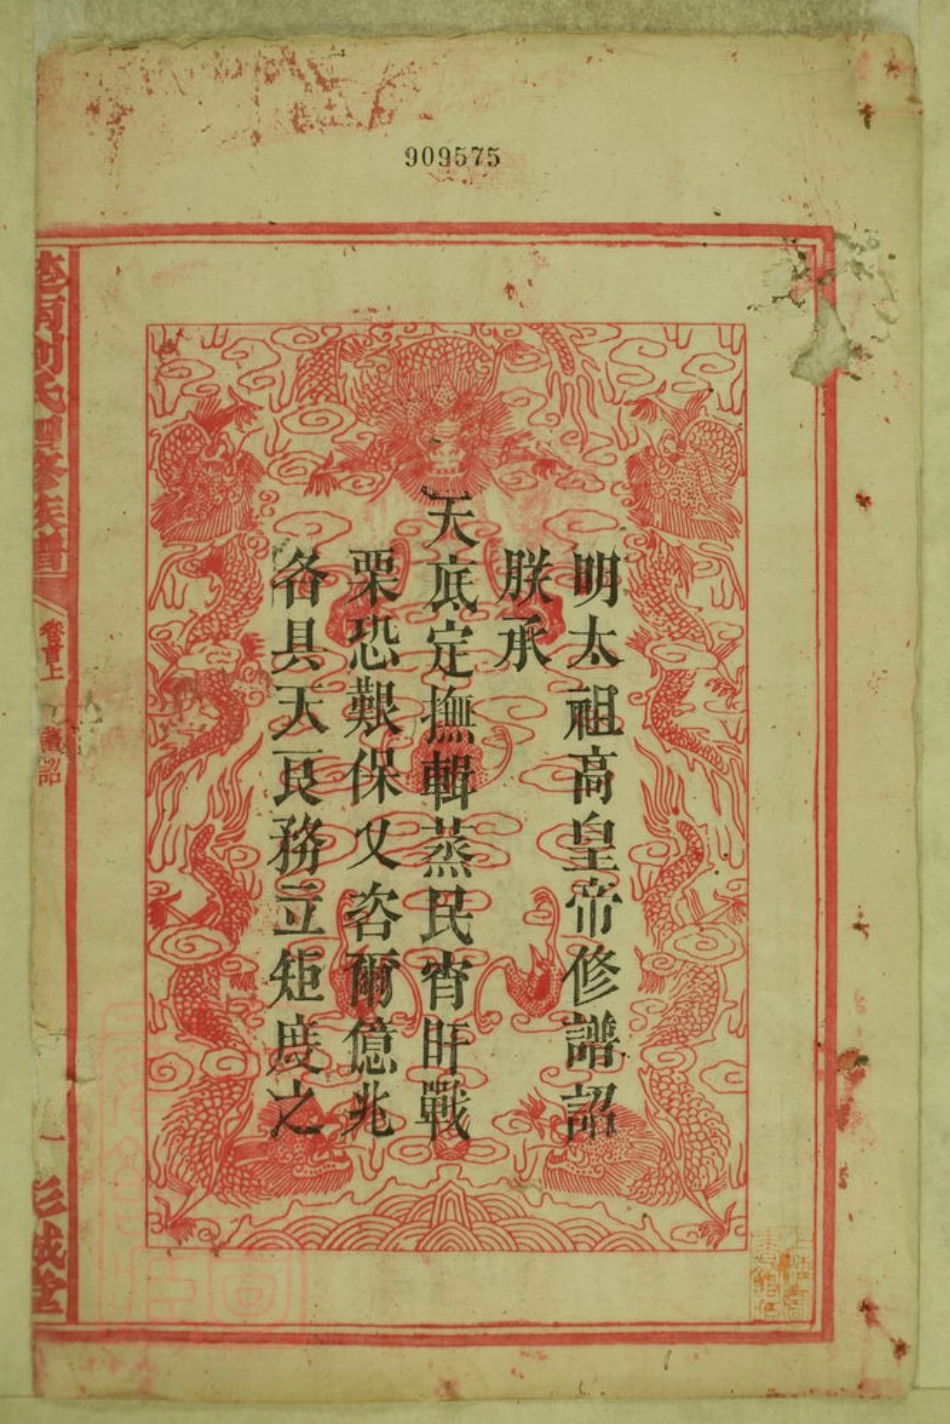 909575
明太祖高皇帝修譜詔
朕承
天底定撫輯蒸民宵旰戰
栗恐艱保乂咨爾億兆
各具天良務立矩度之
氏四修族譜
卷首上
譜詔
一
彭城堂